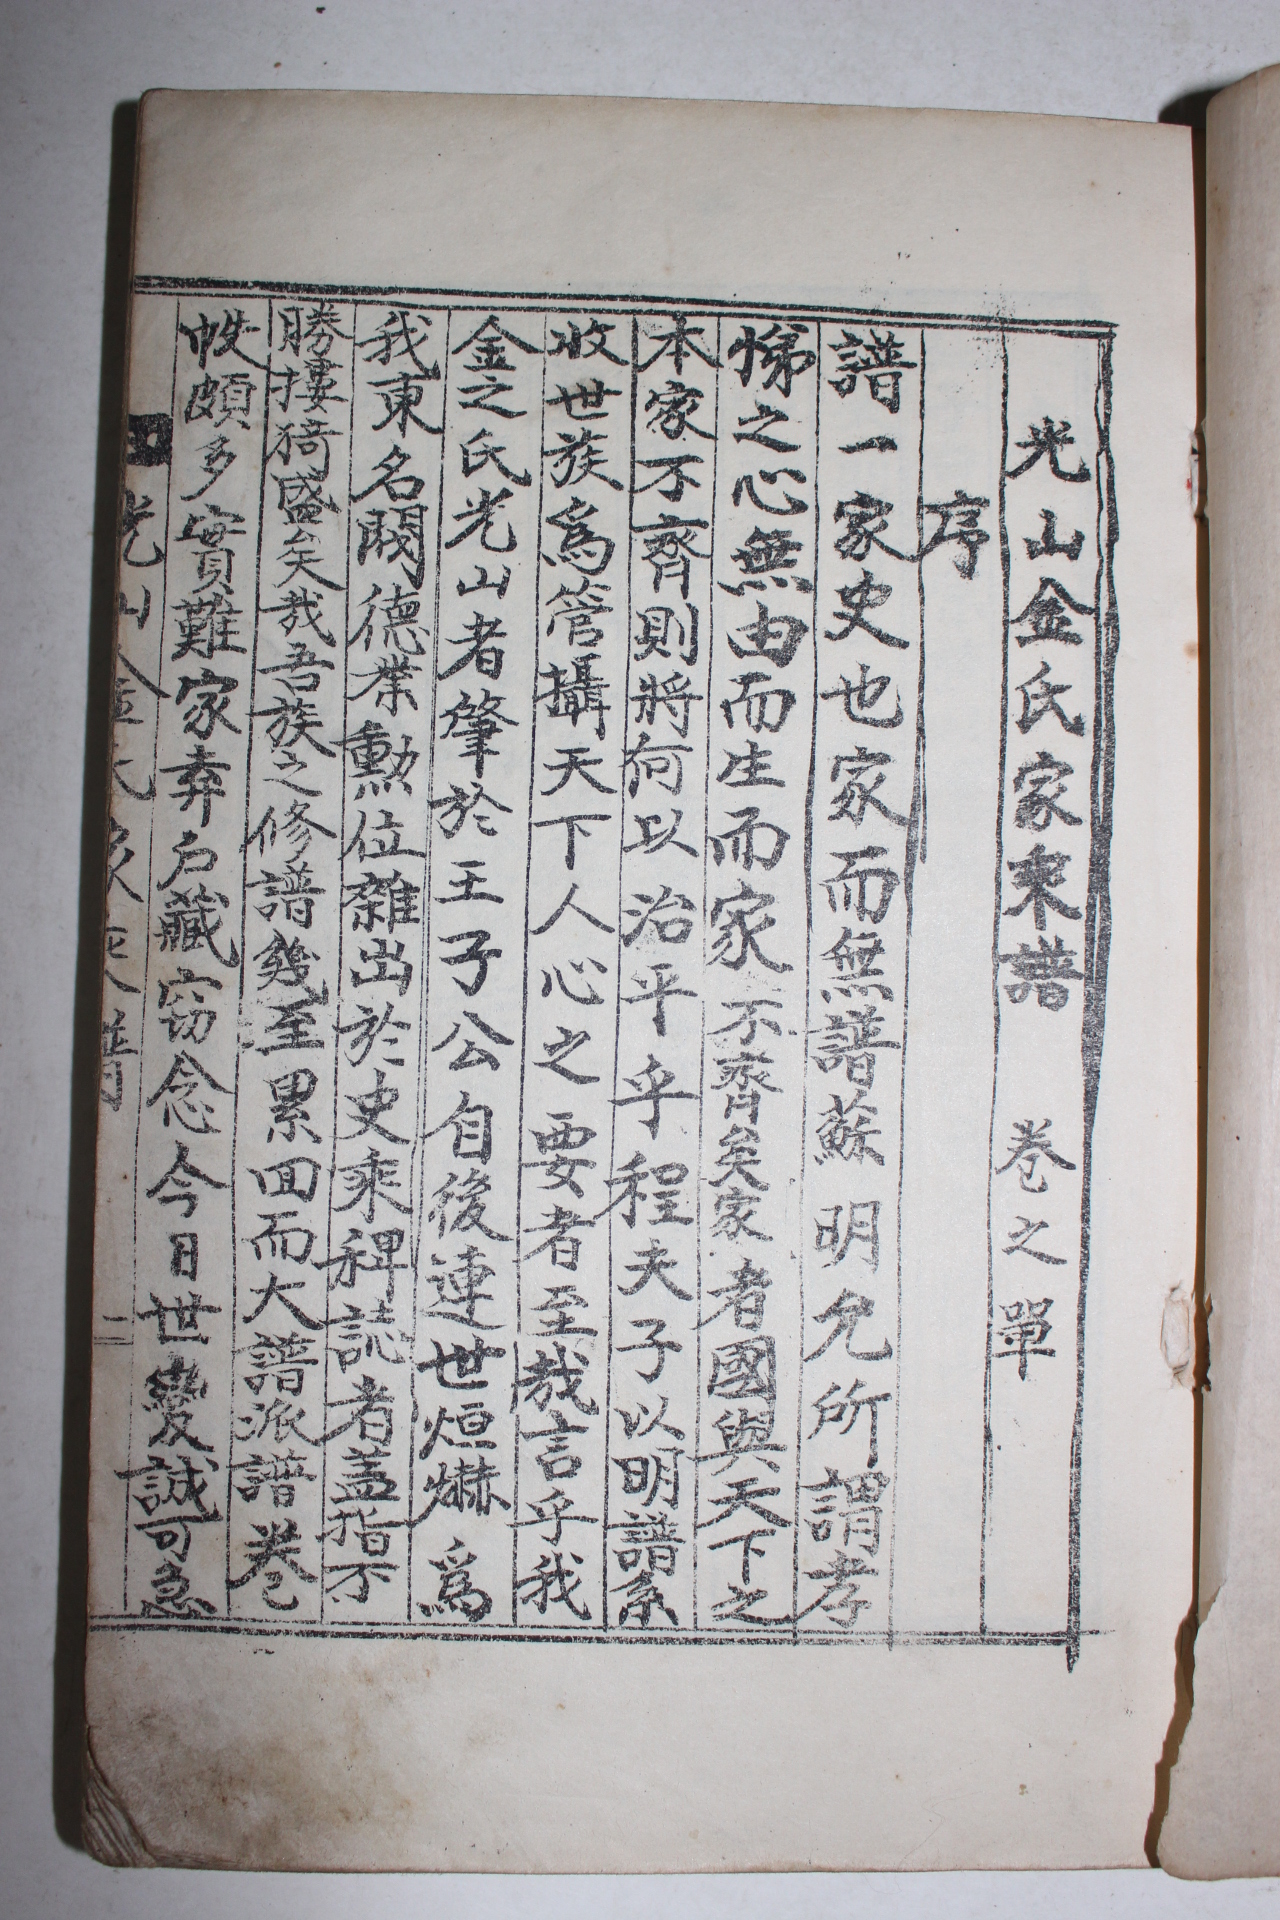 光山金氏家乘譜 卷之單
序
譜一家史也家而無譜蘇明允所謂孝
悌之心無由而生而家不齊矣家者國與天下之
本家不齊則將何以治平乎程夫子以明譜系
收世族爲管攝天下人心之要者至哉言乎我
金之氏光山者肇於王子公自後連世烜爀爲
我東名閥德業勳位雜出於史乘稗誌者盖指不
勝摟猗盛矣哉吾族之修譜幾至累回而大譜派譜卷
帙頗多實難家弆戶藏窃念今日世變誠可急
光山金氏家乘譜 二